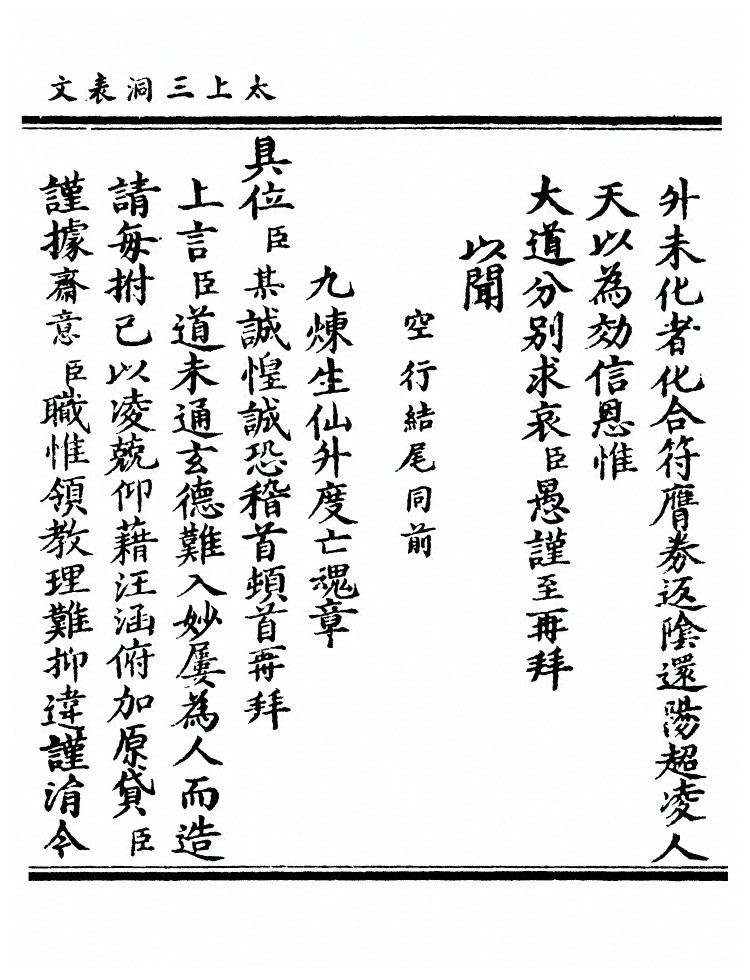 太上三洞表文
外未化者化合符膺券返陰還陽超凌人
天以為効信恩惟
大道分別求哀臣愚謹至再拜
以聞
空行結尾同前
九煉生仙升度亡魂章
具位臣某誠惶誠恐稽首頓首再拜
上言臣道未通玄德難入妙屢為人而造
請每拊己以凌兢仰藉汪涵俯加原貸臣
謹據齋意臣職惟領教理難抑違謹涓今